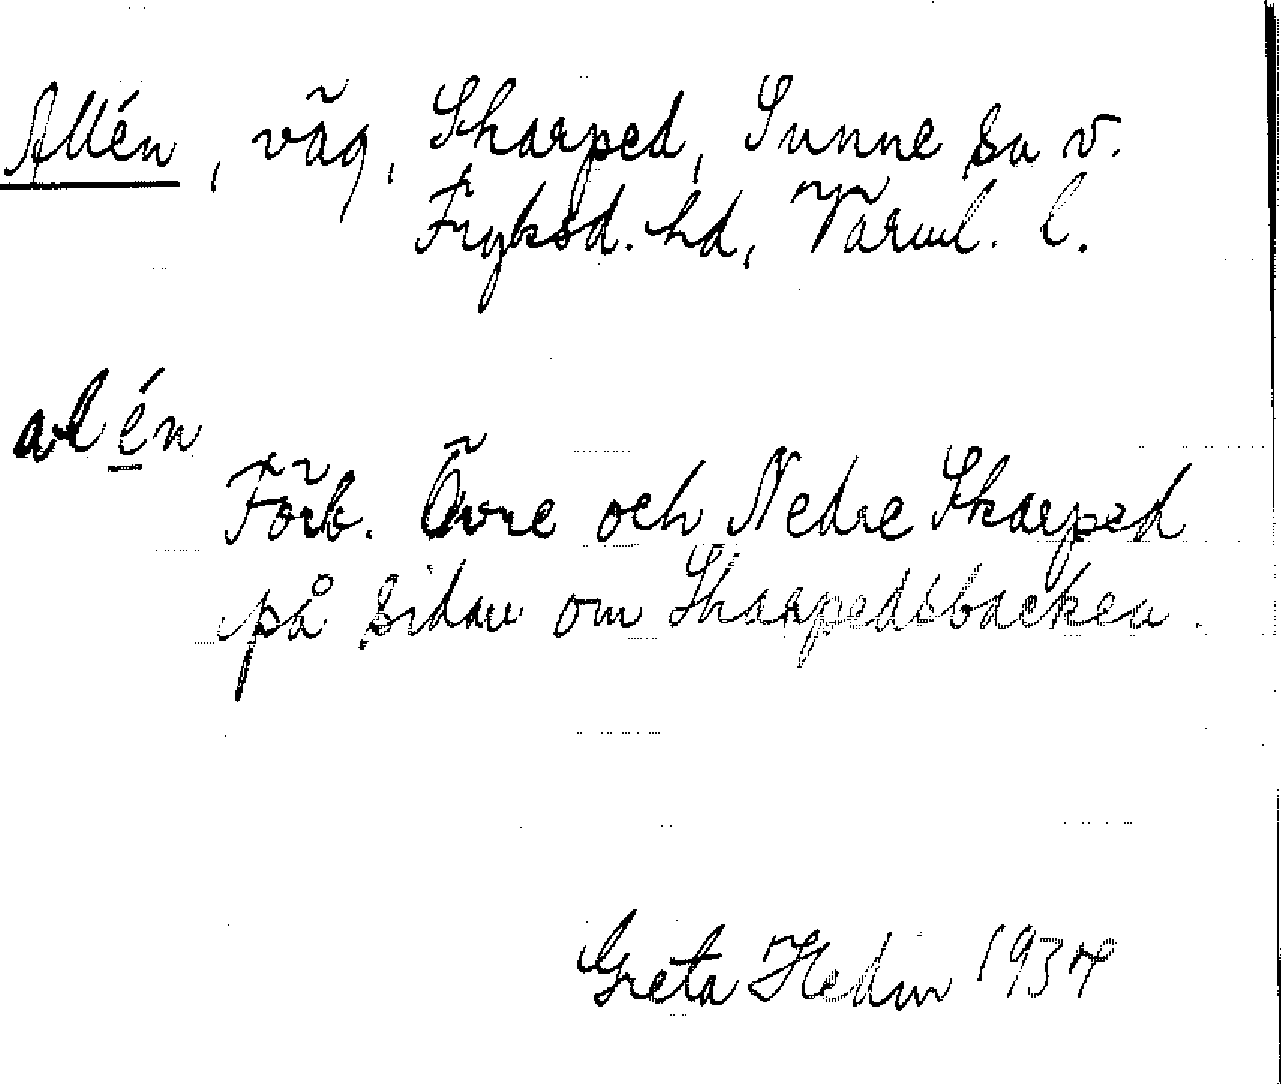 Allén, väg, Skarped, Sunne sn v.
Fryksd. hd, Värml. l.
alén
Förb. Övre och Nedre Skarped
på sidan om Skarpedsbacken.
Greta Hedin 1934